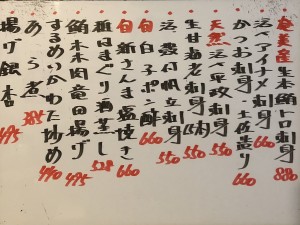 奄美産 生本鮪トロ刺身 880
活〆アイナメ刺身 660
かつお刺身・土佐造り 660
天然 活〆平政刺身 550
生甘海老刺身 550
活 帆立刺身 550
旬 白子ポン酢 660
旬 新さんま塩焼き 660
はまぐり酒蒸し 528
鮪ホホ肉竜田揚げ 495
するめいかわた炒め 440
あら煮 385
揚げ銀杏 495